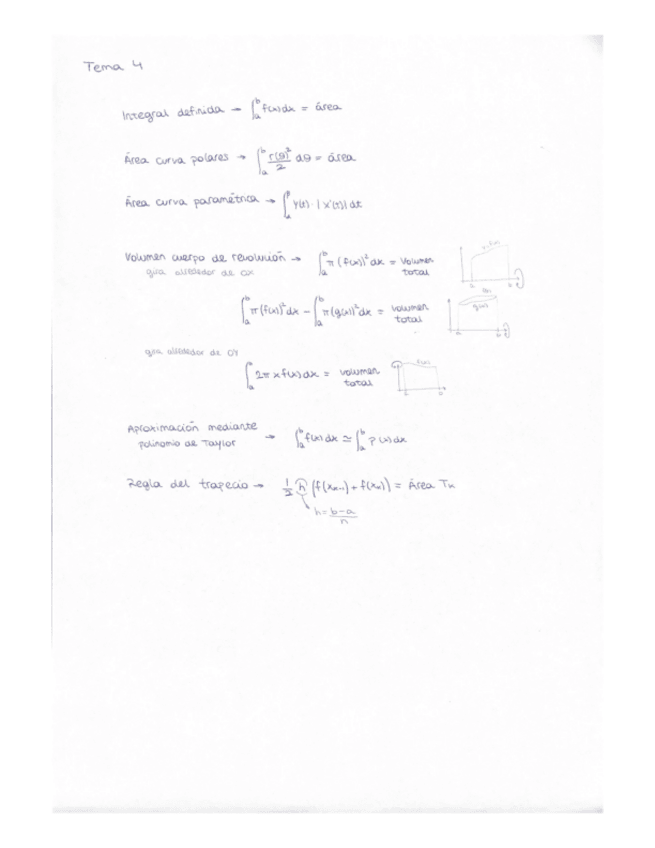 Tema 4
Integral definida → ∫ₐᵇ f(x)dx = área
Área curva polares → ∫ₐᵇ r(θ)²/2 dθ = área
Área curva paramétrica → ∫ y(t)·|x'(t)| dt
Volumen cuerpo de revolución → ∫ₐᵇ π (f(x))² dx = Volumen total
gira alrededor de OX
∫ₐᵇ π(f(x))² dx - ∫ₐᵇ π(g(x))² dx = volumen total
g(x)
gira alrededor de OY
∫ₐᵇ 2π x f(x) dx = volumen total
f(x)
Aproximación mediante
polinomio de Taylor → ∫ₐᵇ f(x) dx ≃ ∫ₐᵇ P(x) dx
Regla del trapecio → 1/2 h (f(xₖ₋₁) + f(xₖ)) = Área Tₖ
h = b-a/n